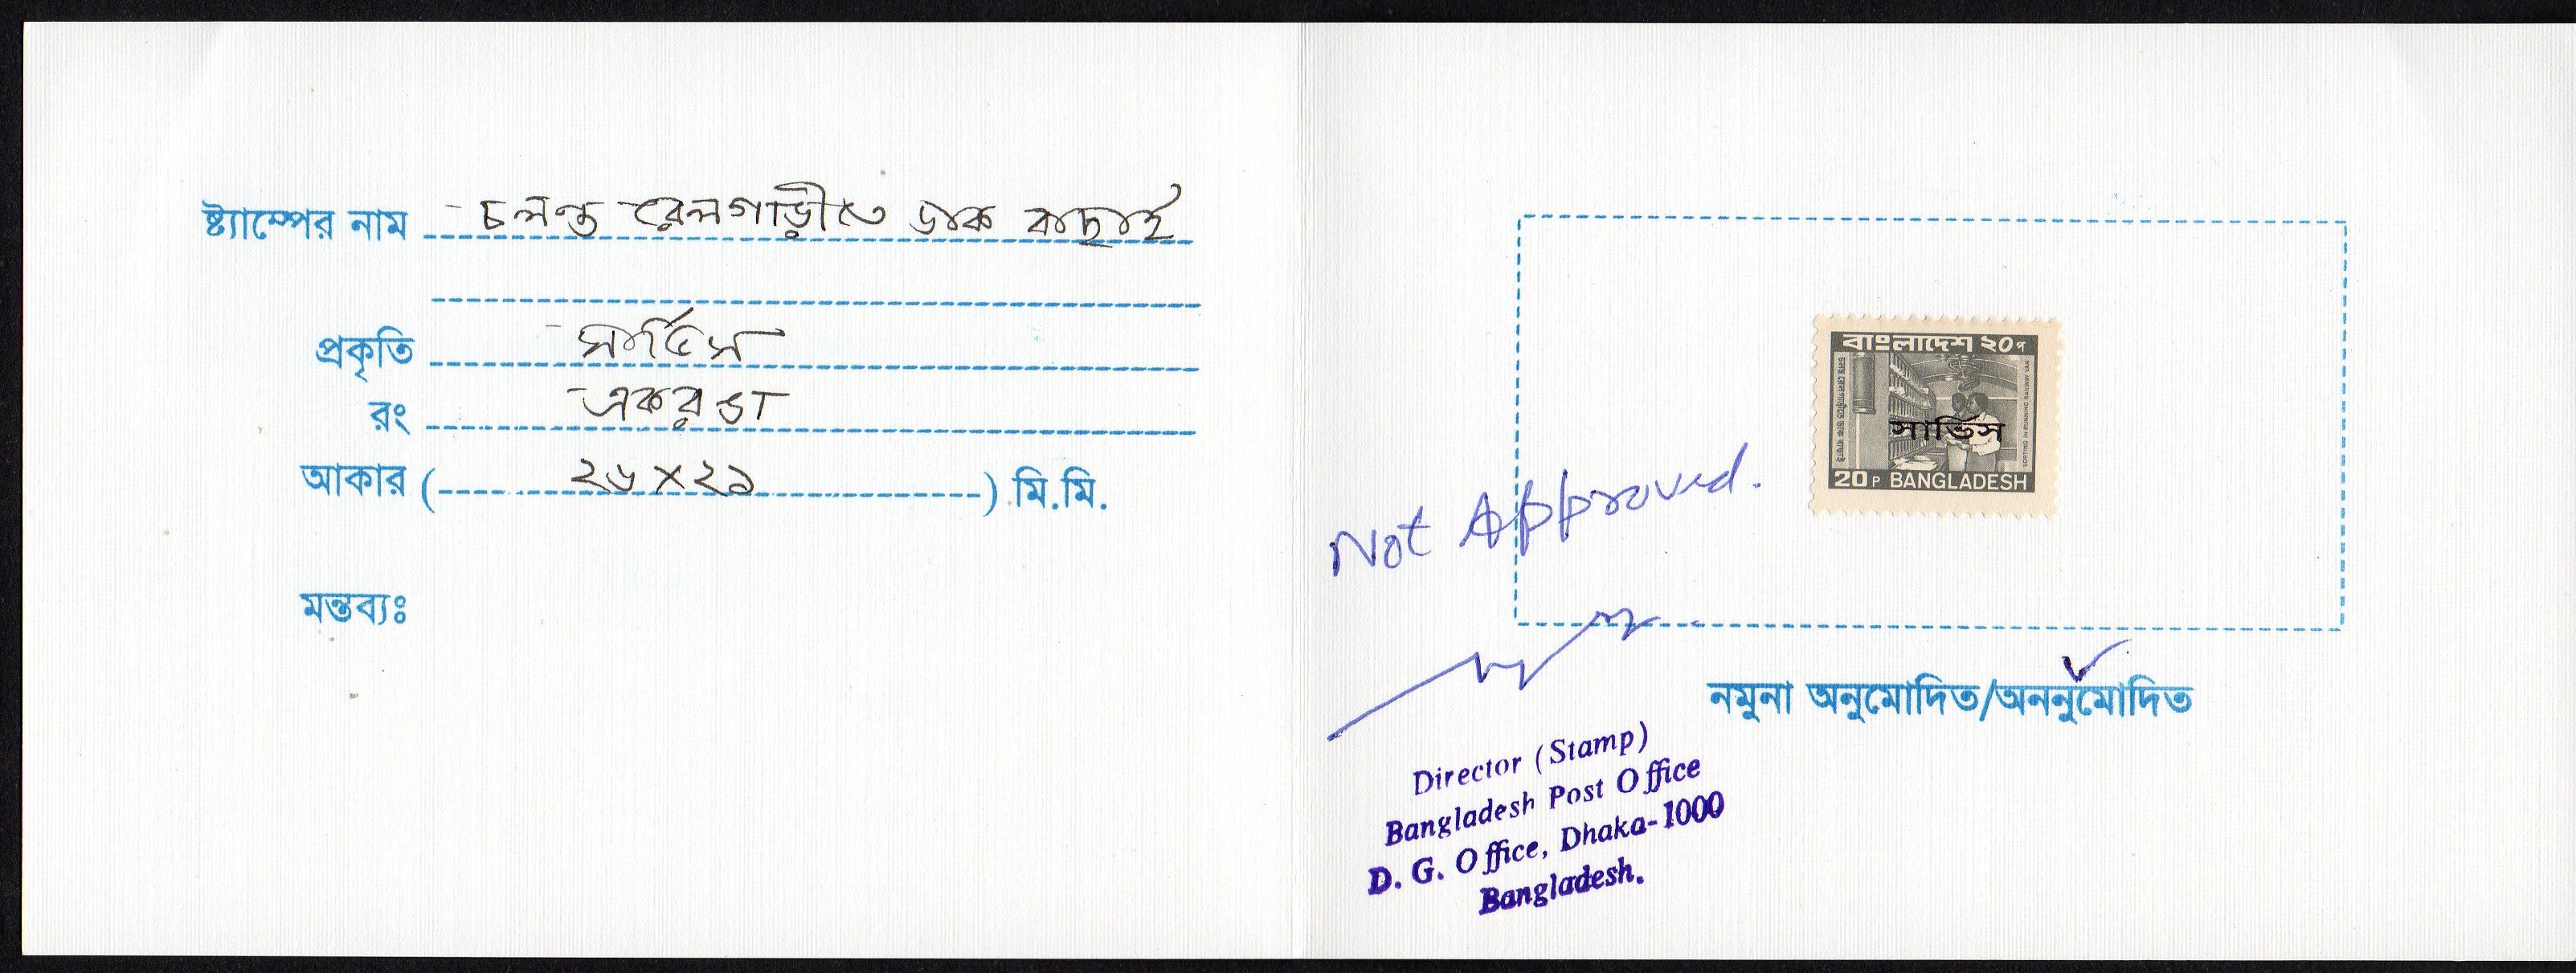 ষ্ট্যাম্পের নাম চলন্ত রেলগাড়ীতে ডাক বাছাই
প্রকৃতি সার্ভিস
রং একরঙা
আকার (২৬ X ২১) মি.মি.
মন্তব্যঃ
বাংলাদেশ ২০প
চলন্ত রেলগাড়ীতে ডাক বাছাই
SORTING IN RUNNING RAILWAY VAN
সার্ভিস
20P BANGLADESH
Not Approved.
নমুনা অনুমোদিত/অননুমোদিত
Director (Stamp)
Bangladesh Post Office
D. G. Office, Dhaka-1000
Bangladesh.